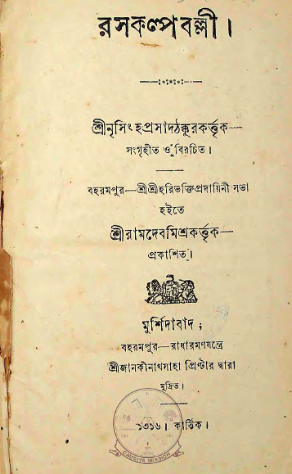 রসকল্পবল্লী।
শ্রীনৃসিংহপ্রসাদঠক্কুরকর্ত্তৃক—
সংগৃহীত ও বিরচিত।
বহরমপুর—শ্রীশ্রীহরিভক্তিপ্রদায়িনী সভা
হইতে
শ্রীরামদেবমিশ্রকর্ত্তৃক—
প্রকাশিত।
মুর্শিদাবাদ;
বহরমপুর—রাধারমণযন্ত্রে
শ্রীজানকীনাথসাহা প্রিণ্টার দ্বারা
মুদ্রিত।
১৩১৬। কার্ত্তিক।
GAUDIYA MISSION